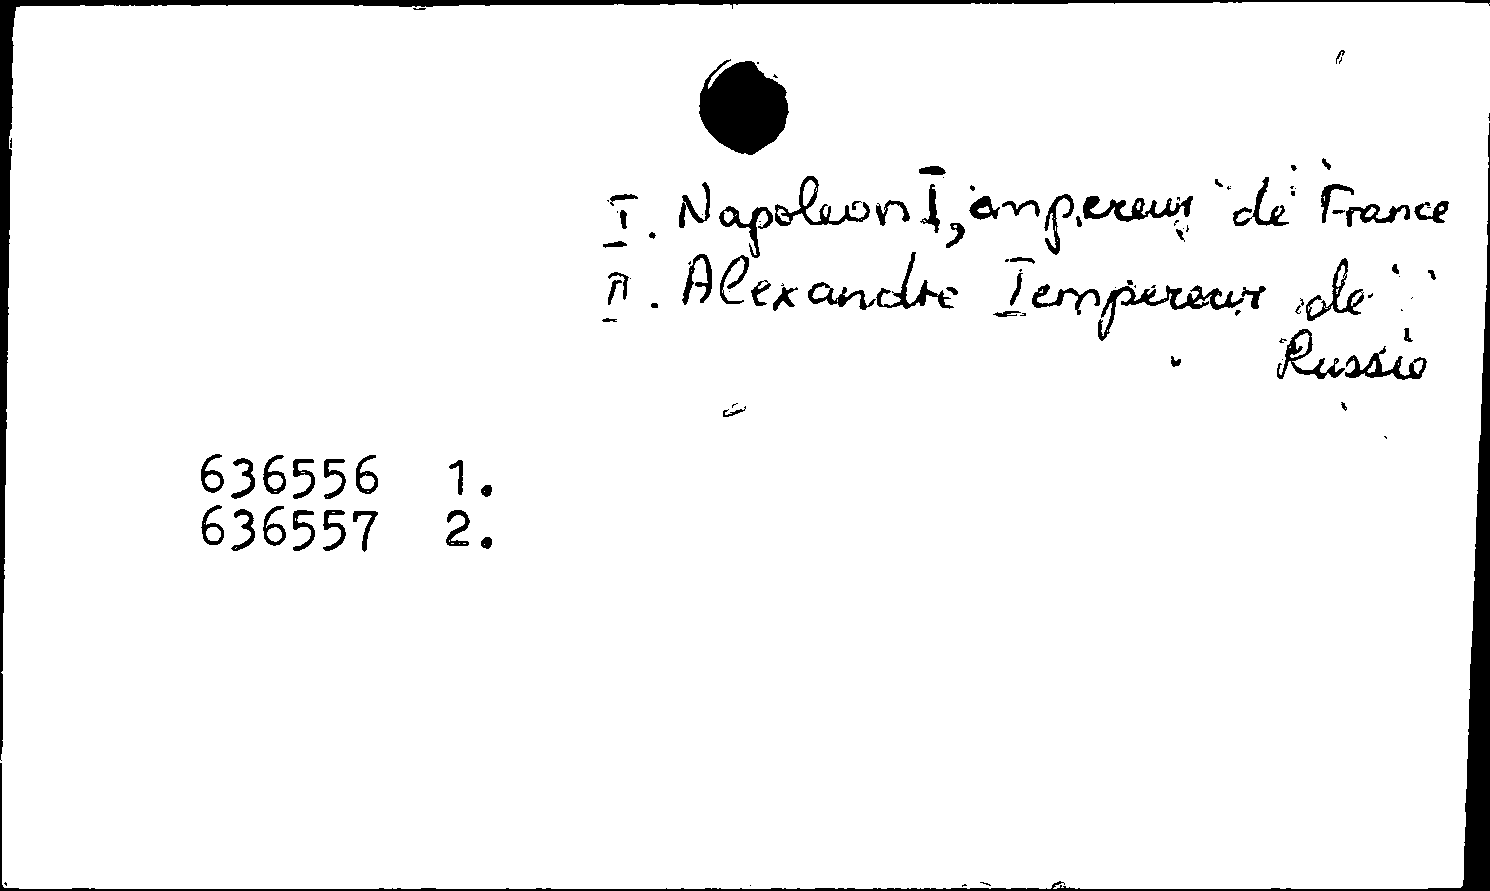 I. Napoleon I, empereur de France
II. Alexandre I empereur de
Russie
636556 1.
636557 2.